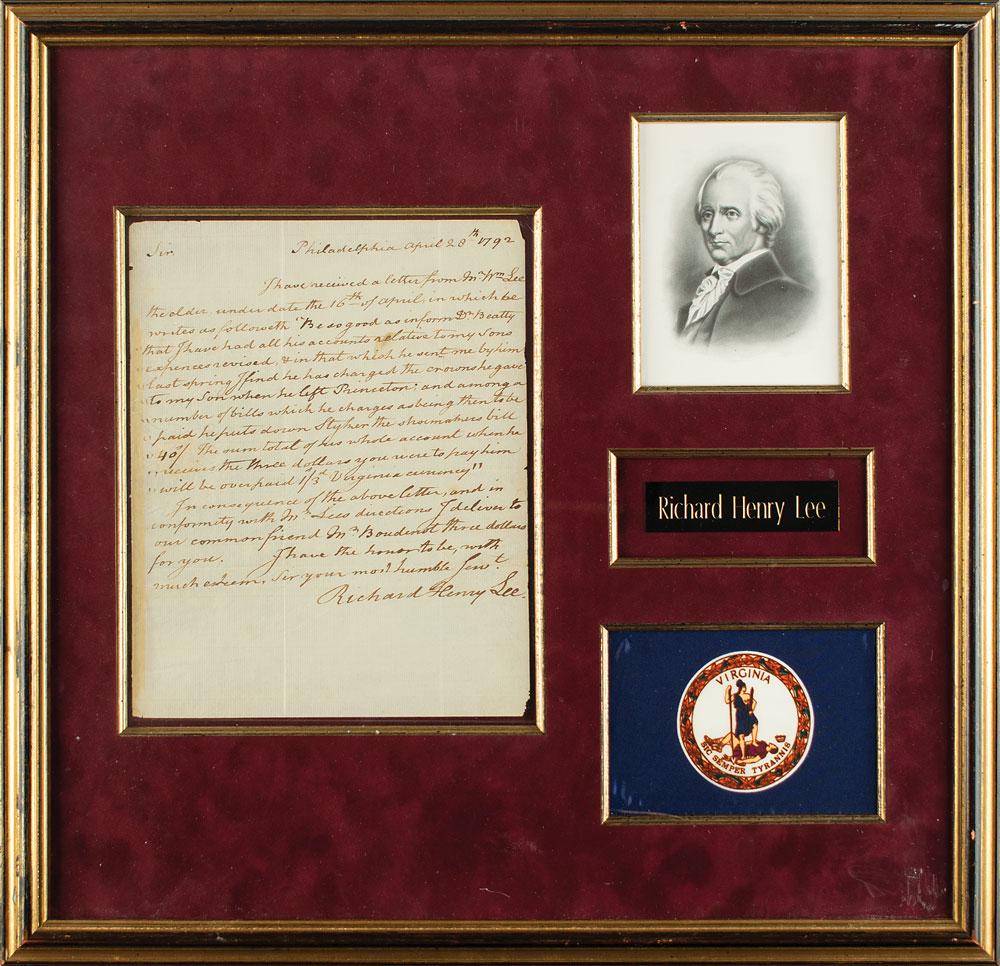 Sir
Philadelphia April 28th 1792
I have received a letter from Mr Wm Lee
the elder, under date the 16th of April, in which he
writes as followeth "Be so good as inform Dr Beatty
that I have had all his accounts relative to my Sons
" expences revised, & in that which he sent me by him
" last spring I find he has charged the crowns he gave
" to my Son when he left Princeton; and among a
" number of bills which he charges as being then to be
" paid he puts down Styker the shoemakers bill
" 40/ The sum total of his whole account when he
" receives the three dollars you were to pay him
" will be overpaid 1/3d Virginia currency"
In consequence of the above letter, and in
conformity with Mr Lees directions I deliver to
our common friend Mr Boudenot three dollars
for you. I have the honor to be, with
much esteem, Sir your most humble Servt.
Richard Henry Lee.
Richard Henry Lee
VIRGINIA
SIC SEMPER TYRANNIS